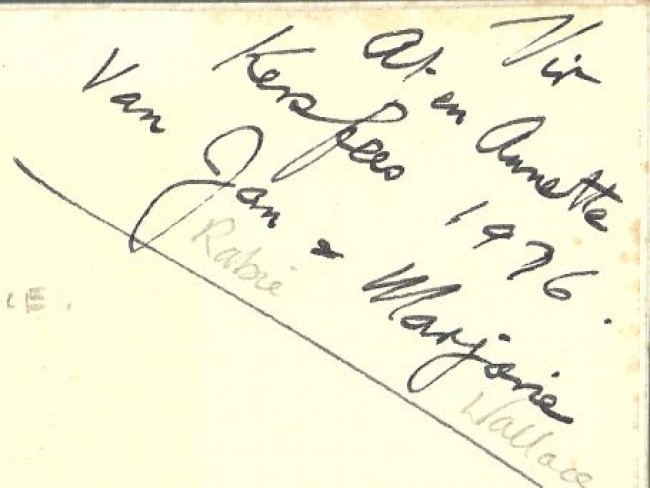 Vir
At en Annette
Kersfees 1976.
Van Jan & Marjorie
Rabie
Wallace